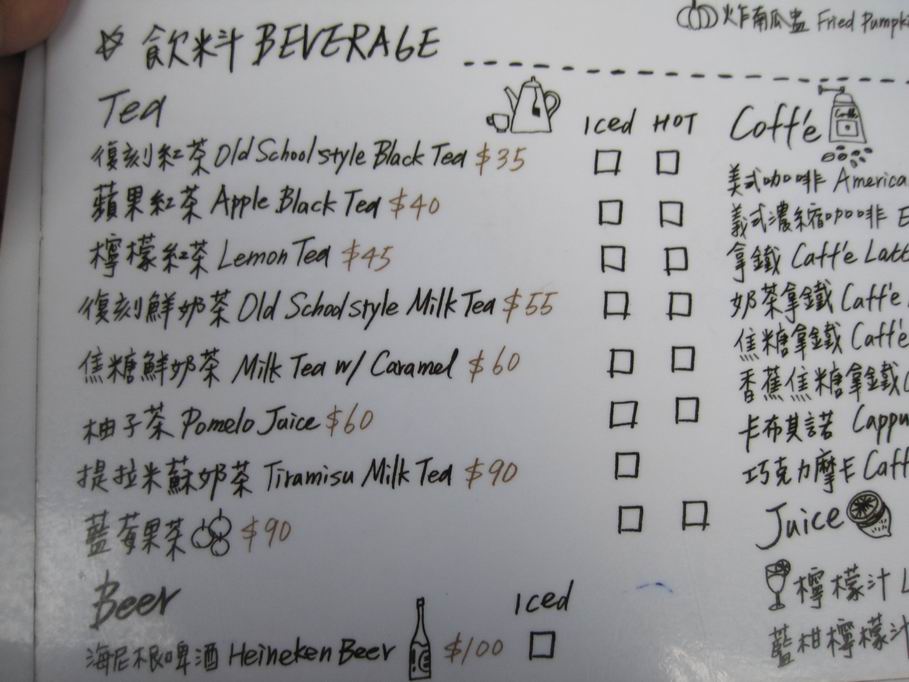 炸南瓜盅 Fried Pumpki
飲料 BEVERAGE
Tea Iced HOT
復刻紅茶 Old School style Black Tea $35
蘋果紅茶 Apple Black Tea $40
檸檬紅茶 Lemon Tea $45
復刻鮮奶茶 Old School style Milk Tea $55
焦糖鮮奶茶 Milk Tea w/ Caramel $60
柚子茶 Pomelo Juice $60
提拉米蘇奶茶 Tiramisu Milk Tea $90
藍莓果茶 $90
Beer Iced
海尼根啤酒 Heineken Beer $100
Caff'e
美式咖啡 America
義式濃縮咖啡 E
拿鐵 Caff'e Latt
奶茶拿鐵 Caff'e
焦糖拿鐵 Caff'e
香蕉焦糖拿鐵 C
卡布其諾 Cappu
巧克力摩卡 Caff
Juice
檸檬汁 L
藍柑檸檬汁